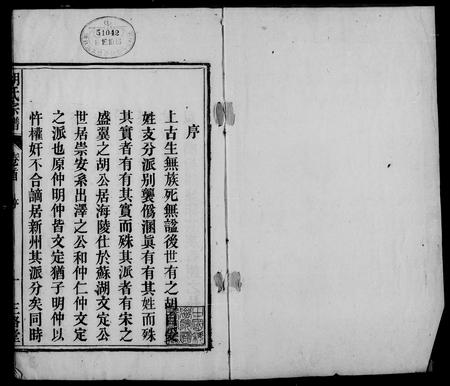 51042
序
上古生無族死無諡後世有之胡
姓支分派别襲僞溷眞有有其姓而殊
其實者有有其實而殊其派者有宋之
盛翼之胡公居海陵仕於蘇湖文定公
世居崇安系出澤之公和仲仁仲文定
之派也原仲明仲皆文定猶子明仲以
忤權奸不合謫居新州其派分矣同時
胡氏宗譜
卷首
序
一